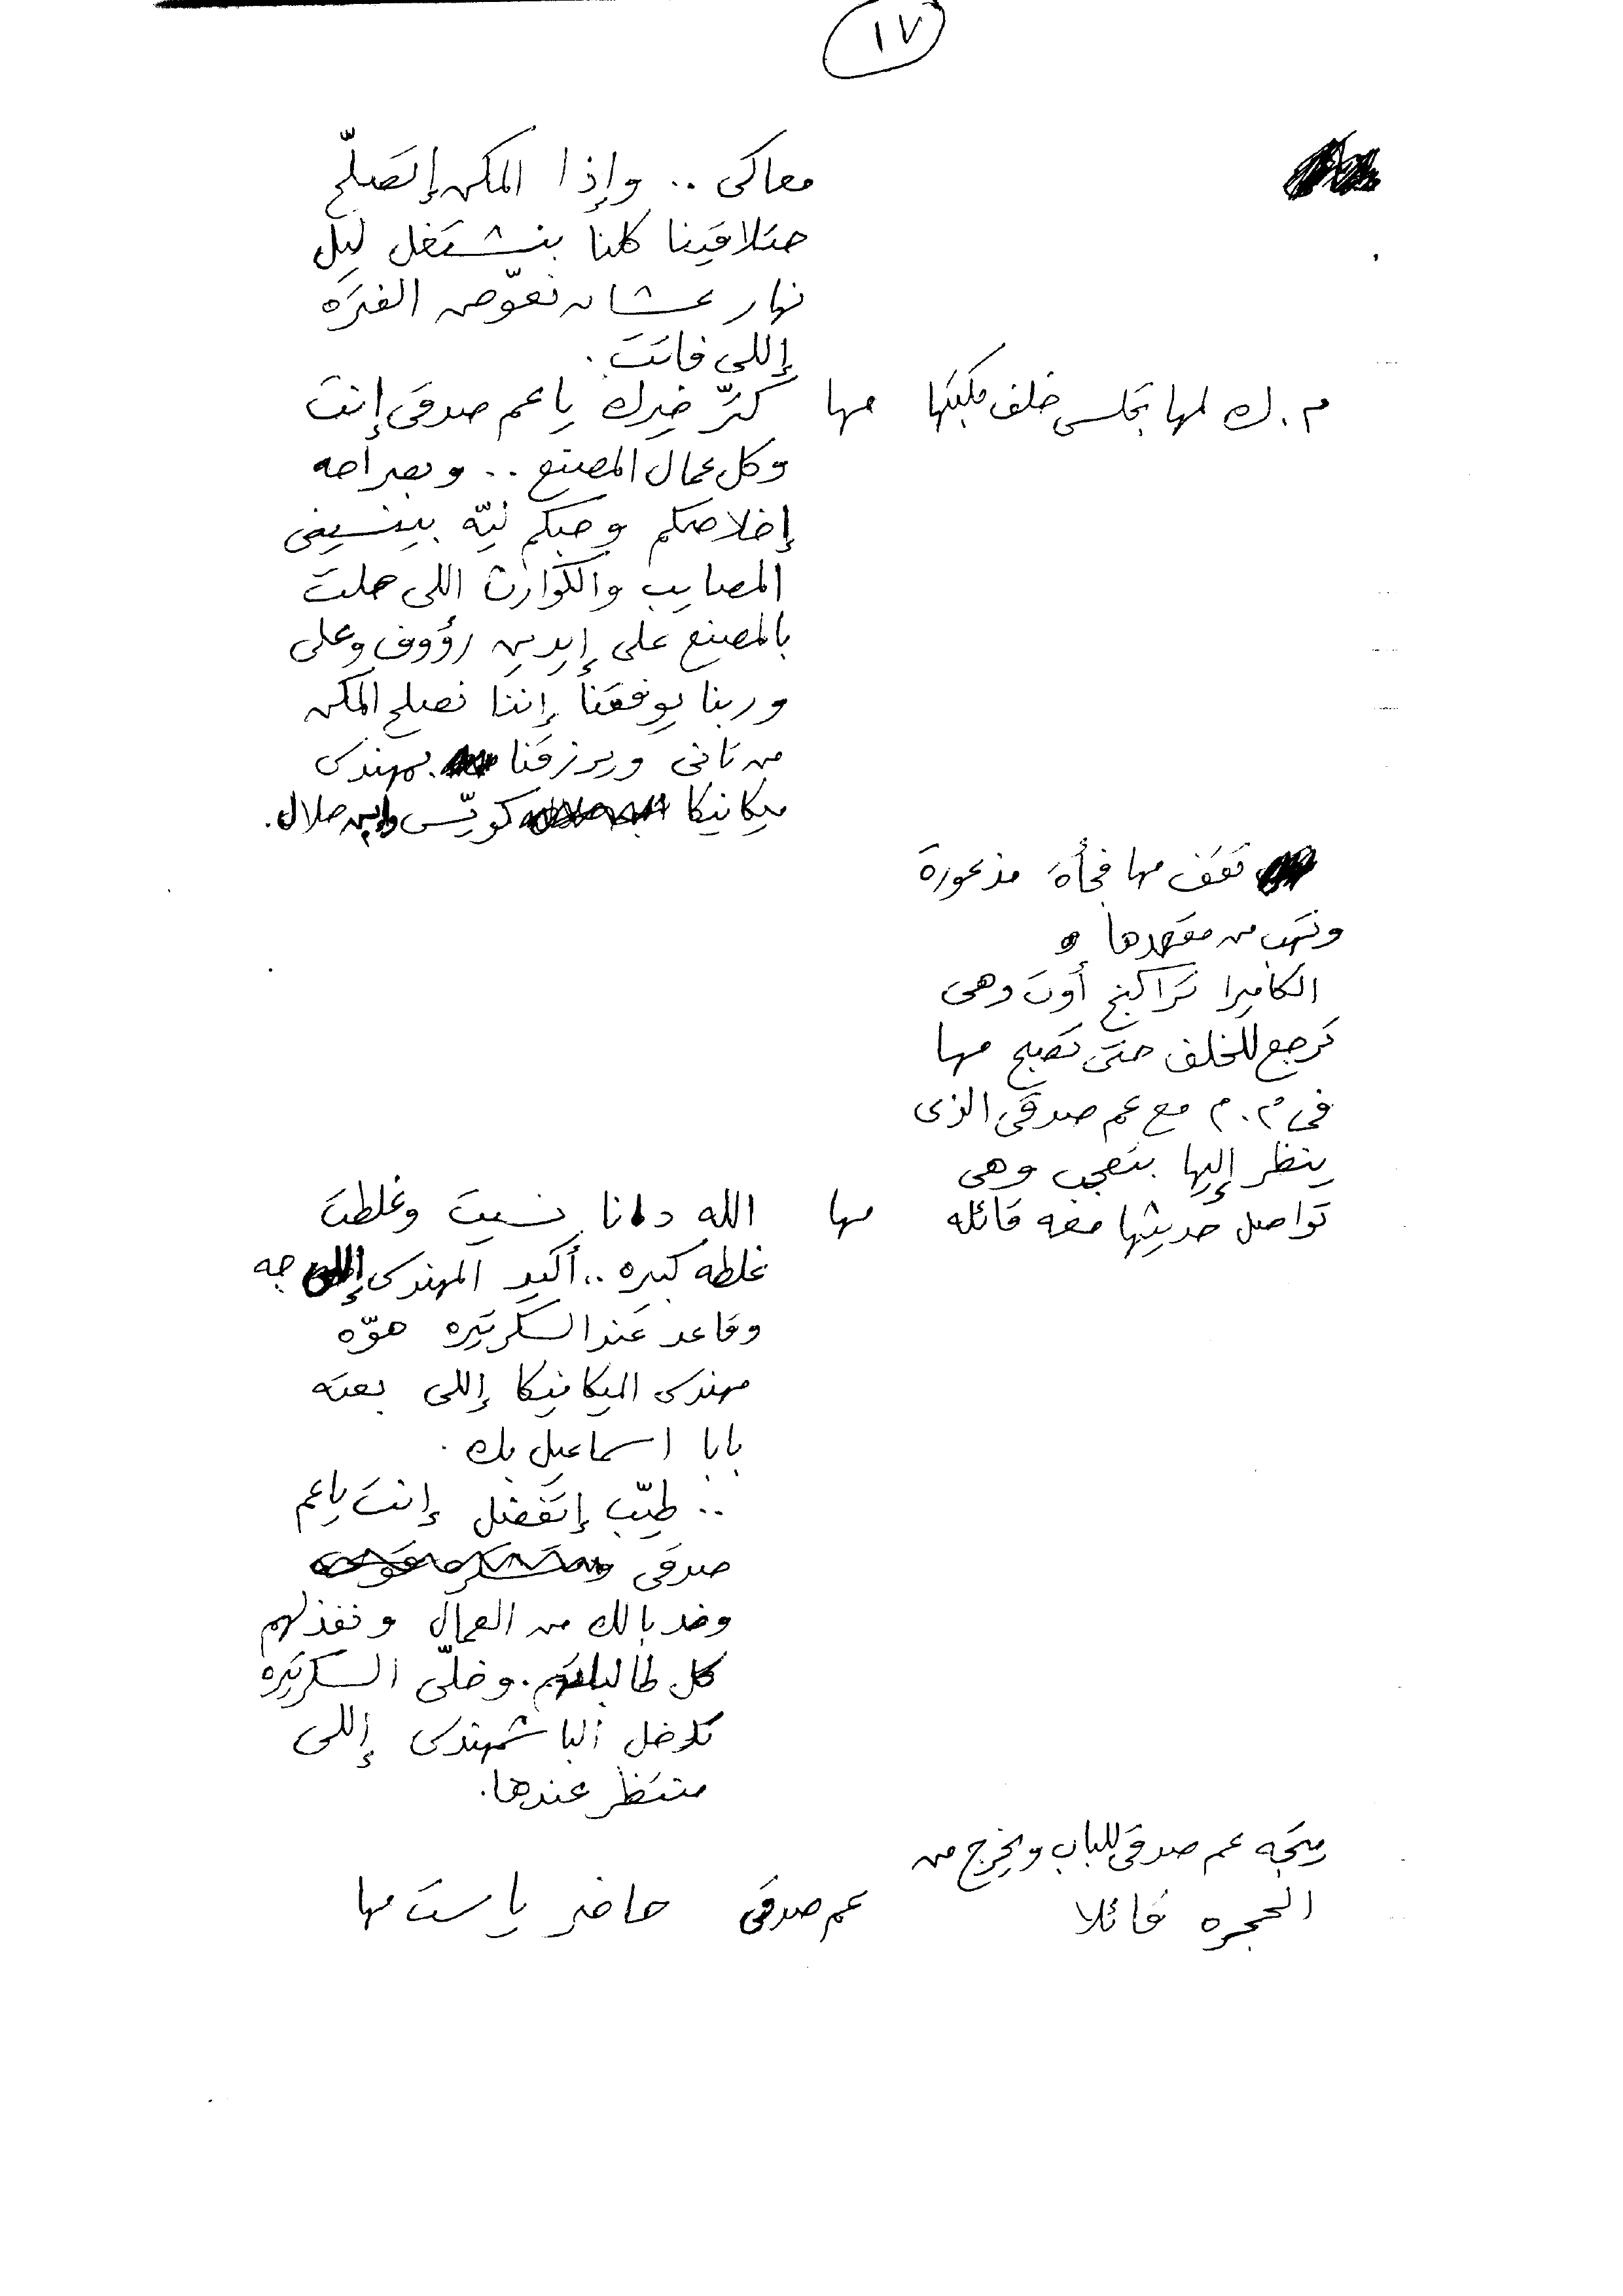 ١٧
معاكى .. وإذا المكن إتصلّح
حتلاقينا كلنا بنشتغل ليل
نهار عشان نعوّض الفتره
إللى فاتت.
م . ك لمها تجلس خلف مكتبها مها كتّر خيرك ياعم صدقى إنت
وكل عمال المصنع .. وبصراحه
إخلاصكم وحبكم ليّه بينسينى
المصايب والكوارث اللى حلت
بالمصنع على إيدين رؤوف وعلى
وربنا يوفقنا إننا نصلح المكن
من تانى ويرزقنا بمهندس
ميكانيكا كويّس وإبن حلال.
تقف مها فجأة مذعورة
وتهب من مقعدها و
الكاميرا تراكنج أوت وهى
ترجع للخلف حتى تصبح مها
فى م . م مع عم صدقى الذى
ينظر إليها بتعجب وهى
تواصل حديثها معه قائله مها الله دانا نسيت وغلطت
غلطه كبيره .. أكيد المهندس إللى جه
وقاعد عند السكرتيره هوّه
مهندس الميكانيكا إللى بعته
بابا اسماعيل بك .
.. طيّب إتفضل إنت ياعم
صدقى
وخد بالك من العمال ونفذ لهم
كل طالباتهم. وخلّى السكرتيره
تدخل الباشمهندس إللى
منتظر عندها.
يتجه عم صدقى للباب ويخرج من
الحجره قائلا عم صدقى حاضر ياست مها